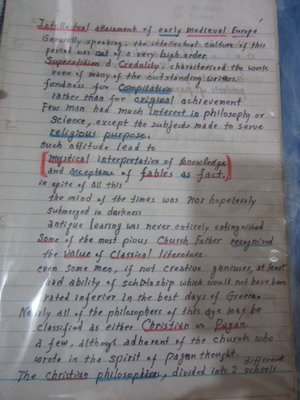 1
Intellectual attainment of early medieval Europe
Generally speaking, the intellectual culture of this
period was not of a very high order
Superstition & Credulity, characterized the work
even of many of the outstanding writers.
fondness for Compilation
rather than for original achievement
Few man had much interest in philosophy or
science, except the subjects made to serve
religious purpose.
such attitude lead to
[mystical interpretation of knowledge
and acceptance of fables as fact.]
in spite of all this
the mind of the times was nor hopelessly
submerged in darkness
antique learing was never entirely extinguished
Some of the most pious Church Father recognized
the value of Classical literature.
even some men, if not creative geniuses, at least
had ability of scholaship which would not have been
rated inferior in the best days of Greece.
Nearly all of the philosophers of this age may be
classified as either Christian or Pagan.
a few, although adherent of the church who
wrote in the spirit of pagan thought
The Christian philosophies, divided into 2 different schools